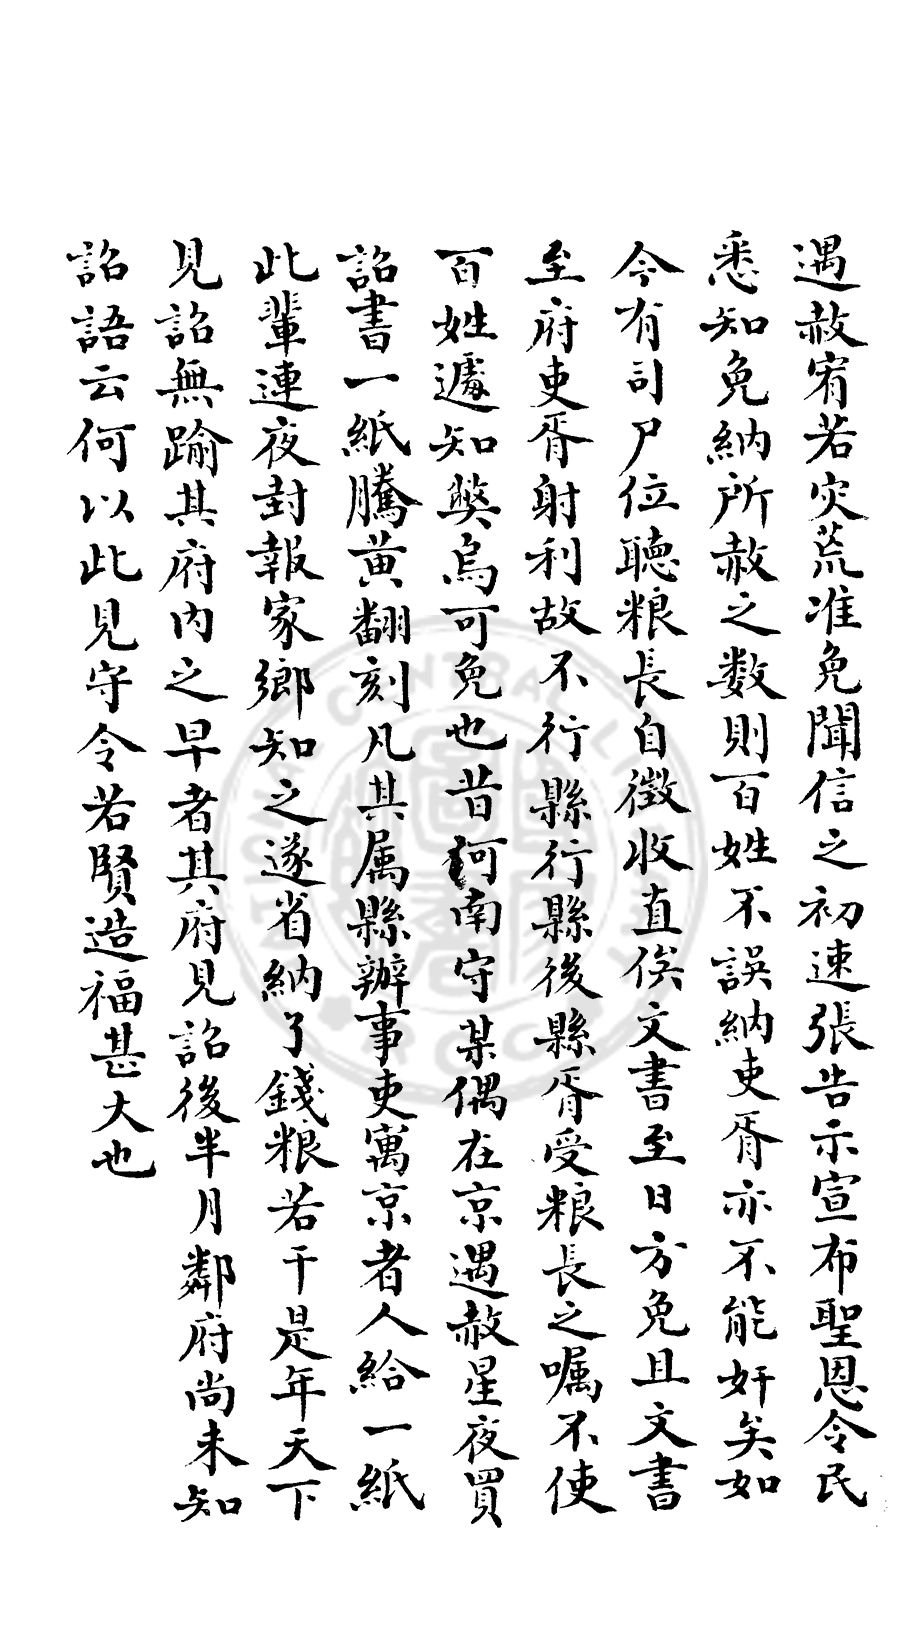 遇赦宥若灾荒准免聞信之初速張告示宣布聖恩令民
悉知免納所赦之数則百姓不誤納吏胥亦不能奸矣如
今有司尸位聽粮長自徵收直俟文書至日方免且文書
至府吏胥射利故不行縣行縣後縣胥受粮長之嘱不使
百姓遽知獘烏可免也昔河南守某偶在京遇赦星夜買
詔書一紙騰黄翻刻凡其属縣辦事吏寓京者人給一紙
此輩連夜封報家鄉知之遂省納了錢粮若干是年天下
見詔無踰其府内之早者其府見詔後半月鄰府尚未知
詔語云何以此見守令若賢造福甚大也
CENTRAL LIBRARY